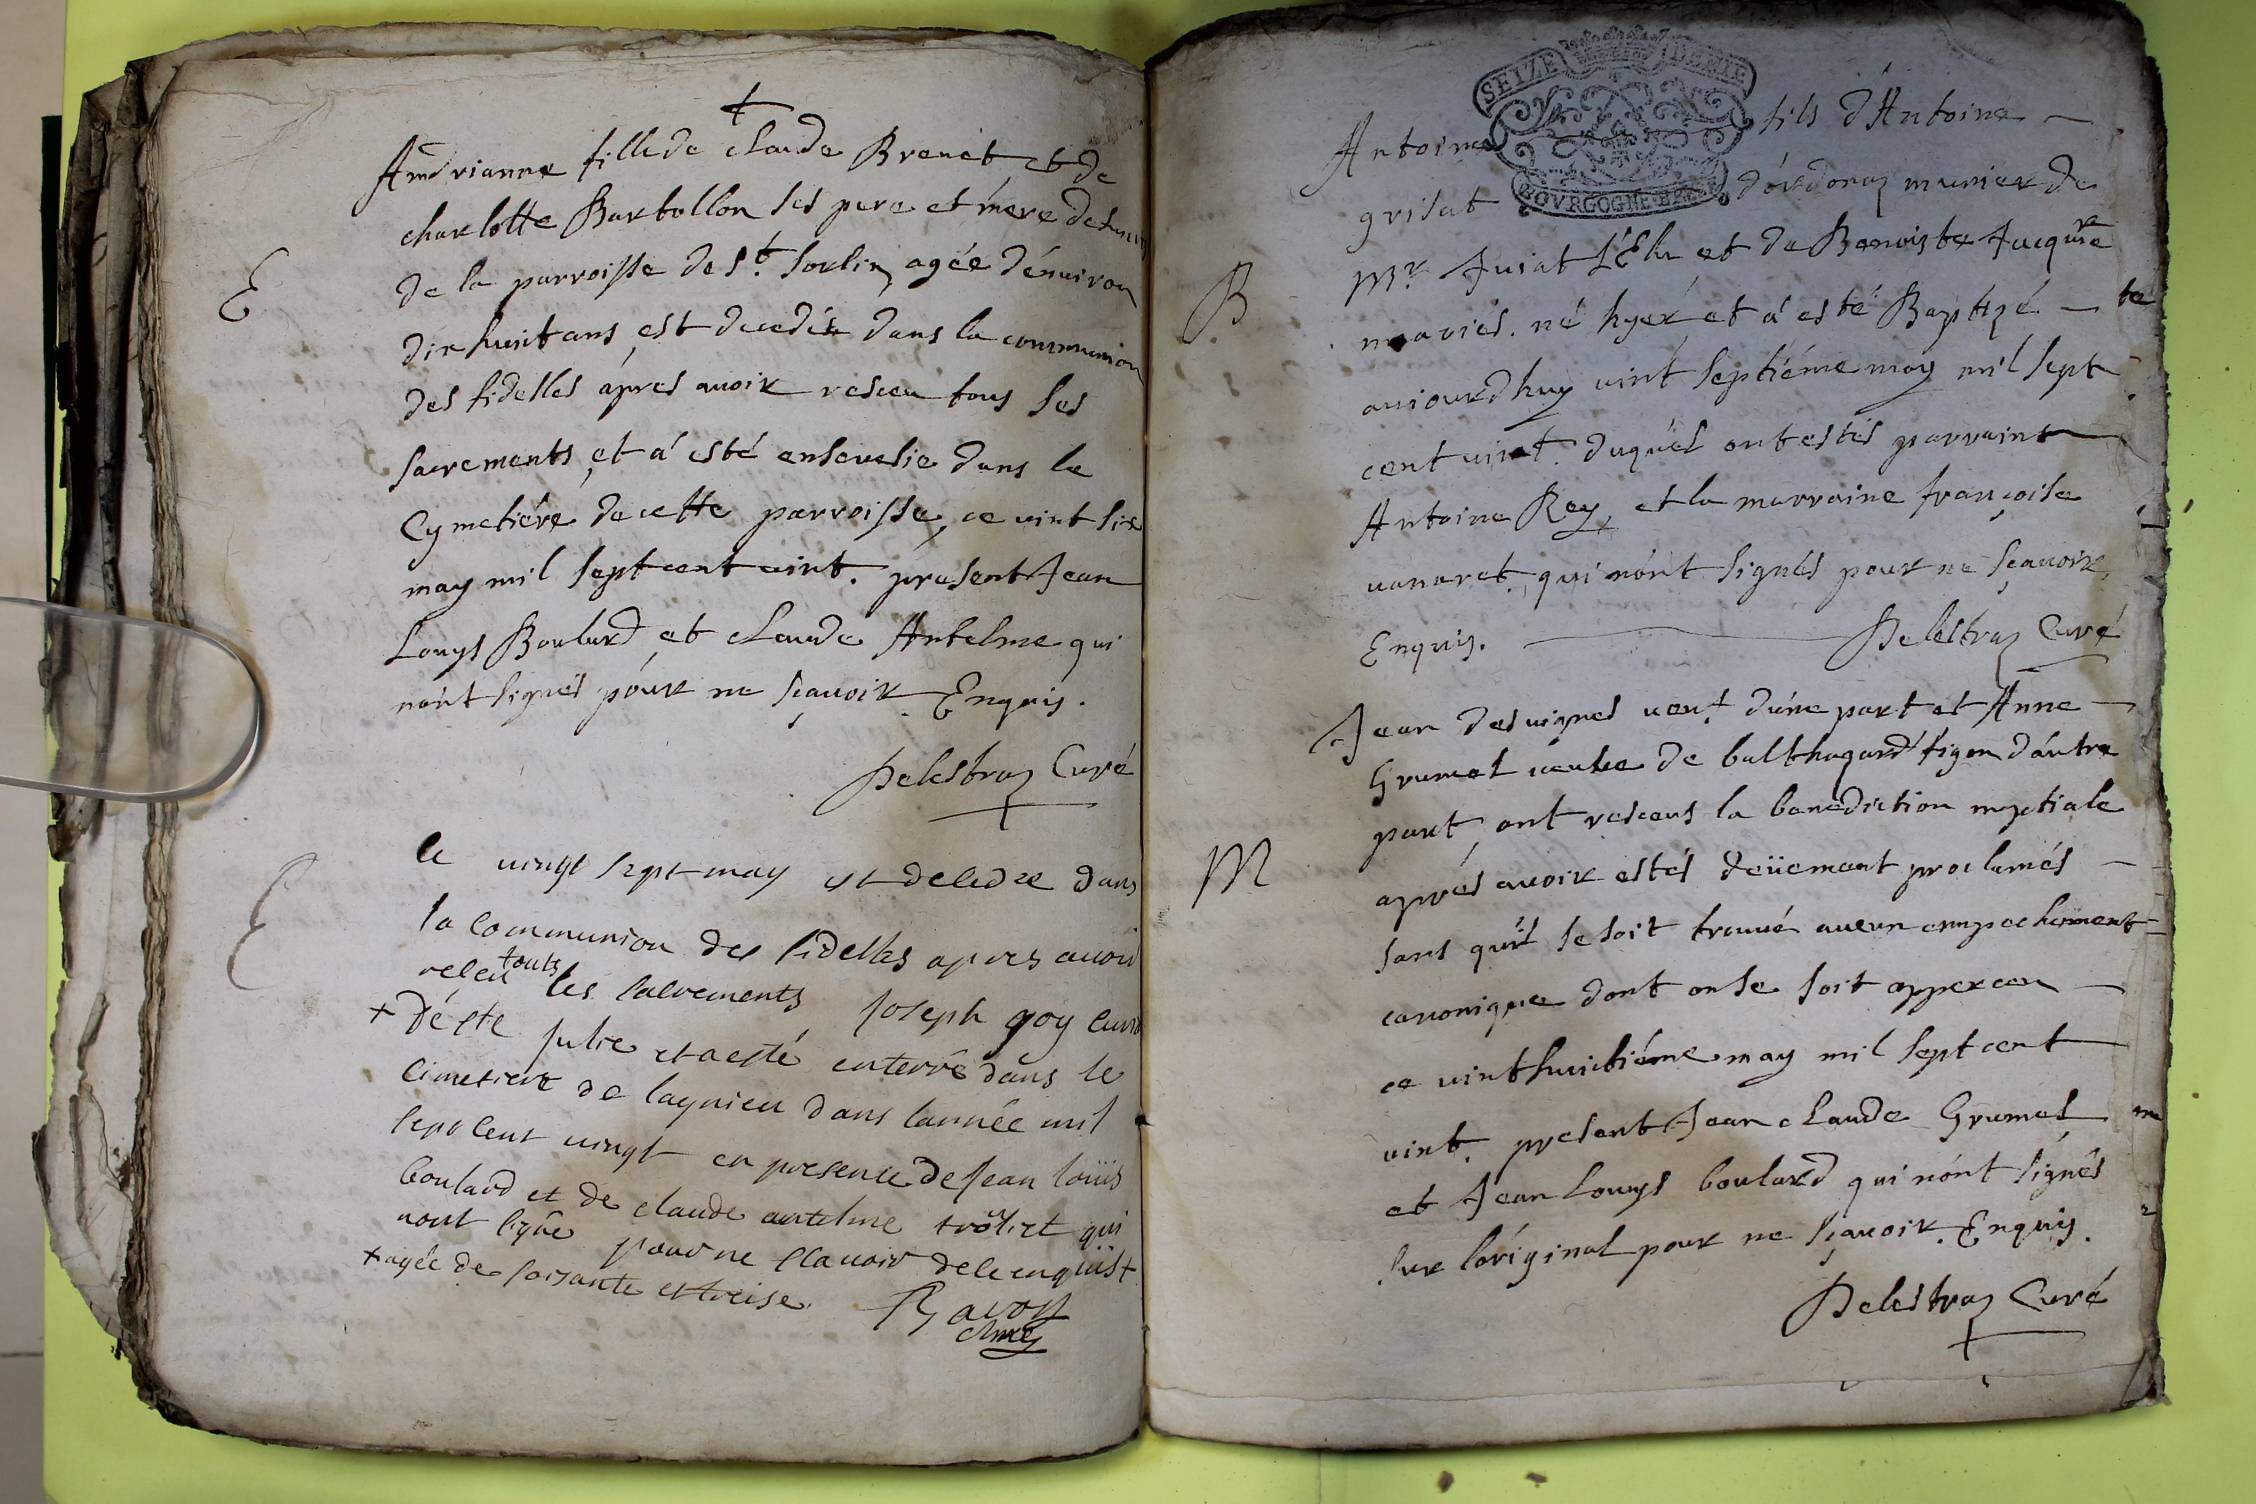 Andrianne fille de claude Brenet et de
charlotte Bartollon ses pere et mere
de la parroisse de St. Sorlin agée d'énuiron
dix huit ans est decedée dans la communion
des fidelles ápres auoir resceu tous ses
sacrements et a' esté enseuelie dans le
Cymetiére de cette parroisse, ce vint six
may mil sept cent vint. présent Jean
Louys Boulard et claude Antelme qui
nónt signés póur ne sçauoir Enquis.
Delestraz Curé
E
le vingt sept may est decedee dans
la communion des fidelles apres avoir
receu touts les sacrements Joseph goy
+ dé ste Julie et a esté enterré dans le
cimetiere de lagnieu dans lannée mil
sept cent vingt en presence de Jean loüis
boulard et de claude antelme trolliet qui
nont signe pour ne scavoir de ce enquis +
+ agée de soisante et treise.
E
SEIZE DEMIE
BOVRGOGNE BRESSE
Antoine fils d'Antoine
grisat d'ordonaz munier de
Mr. Juiat L'Elu et de Benoiste Jacquete
mariés. né hyer et á esté Baptizé
aujourdhuy vint septiéme may mil sept
cent vint. duquel ont estés parraint
Antoine Rey, et la marraine françoise
vanaret, qui nónt signés pour ne sçauoir
Enquis. Delestraz Curé
B
Jean desvignes veuf d'úne part et Anne
Grumel veuue de balthazard figon dáutre
part, ont resceus la benediction nuptiale
aprés auoir estés deüement proclamés
sans qu'il se soit trouué aucun empechement
canonique dont on se soit apperceu
ce vint huictiéme may mil sept cent
vint. present Jean claude Grumel
et Jean Louys boulard qui nónt signés
sur lóriginal pour ne sçauoir. Enquis.
Delestraz Curé
M